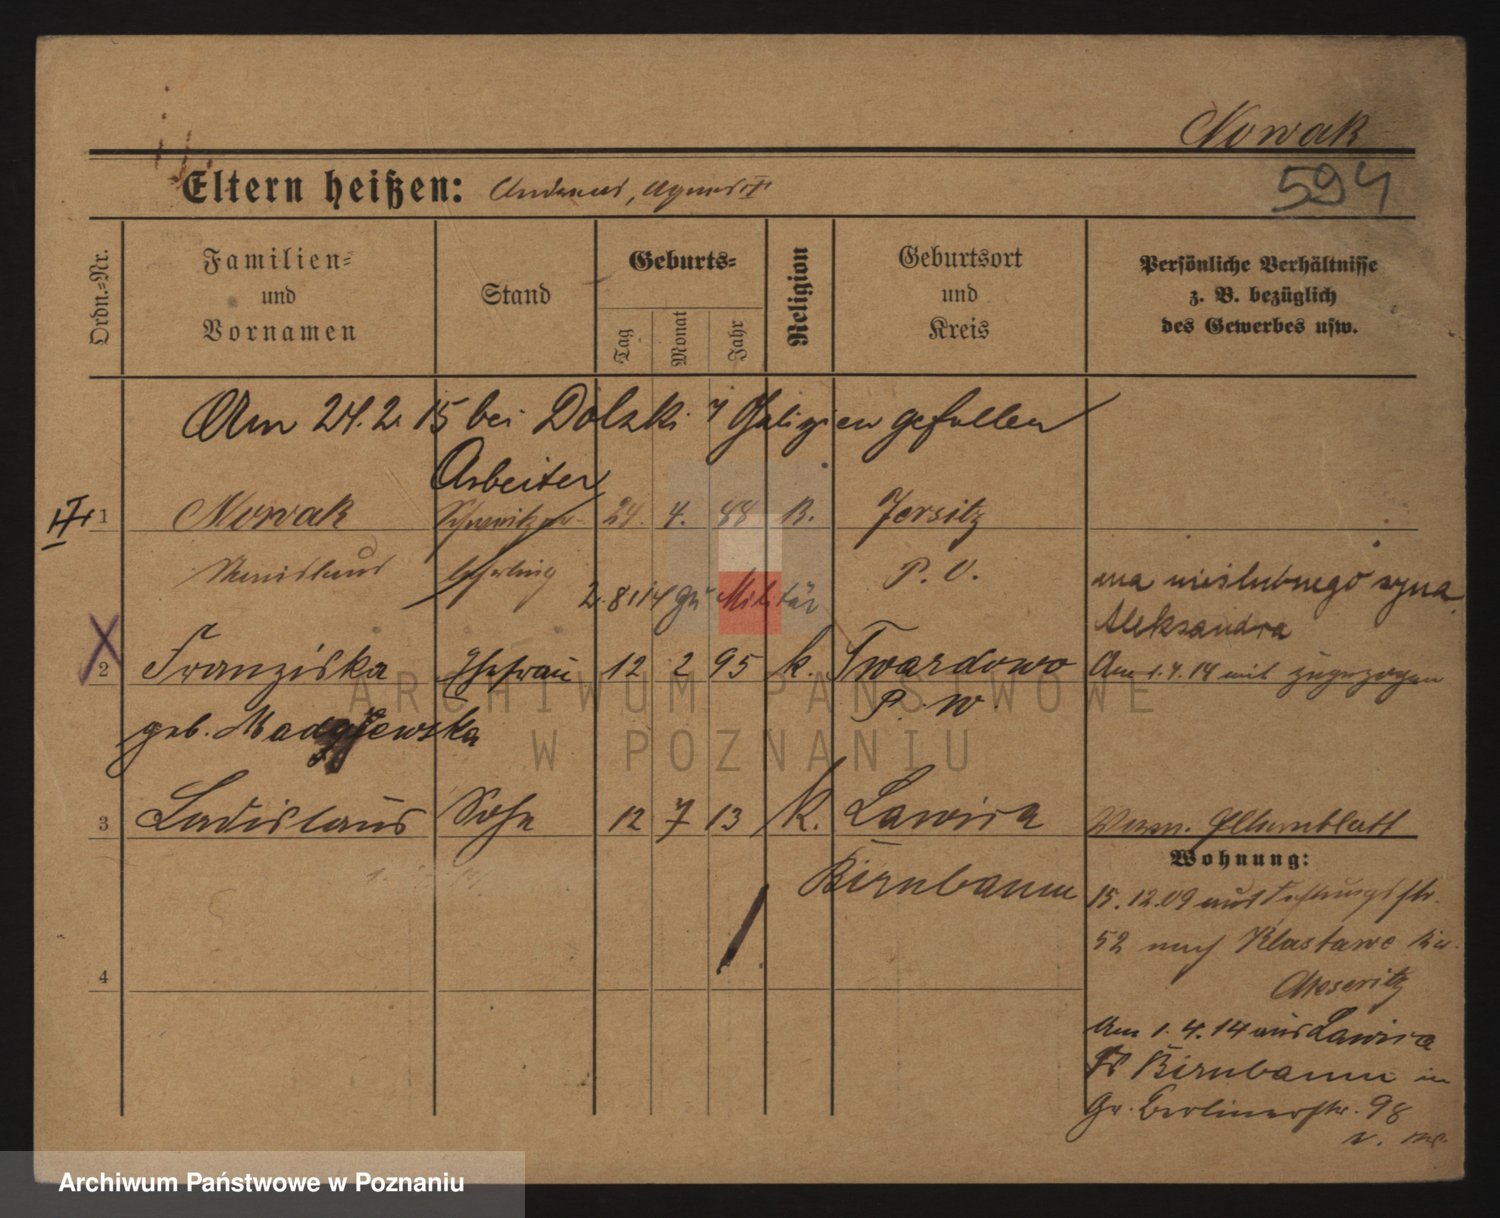 Nowak
594
Eltern heißen: Andreas, Agnes
Ordn.-Nr.
Familien-
und
Vornamen
Stand
Geburts-
Tag
Monat
Jahr
Religion
Geburtsort
und
Kreis
Persönliche Verhältnisse
z. B. bezüglich
des Gewerbes usw.
Am 24.2.15 bei Dolzki Galizien gefallen
Arbeiter
1 Nowak 24. 4. 88 K. Jersitz
Stanislaus Lehrling P. O.
2.8.14 zu Militär
ma nieślubnego syna
Aleksandra
2 Franziska Ehefrau 12 2 95 k. Twardowo
Am 1.4.14 mit zugezogen
P. W.
geb.
3 Ladislaus Sohn 12 7 13 K. Lawica
Birnbaum
Wohnung:
15.12.09 aus Festungsstr.
52 nach Klastawe Kr.
Meseritz
4
Am 1.4.14 aus Lawica
Birnbaum in
Gr. Berlinerstr. 98
ARCHIWUM PAŃSTWOWE
W POZNANIU
Archiwum Państwowe w Poznaniu